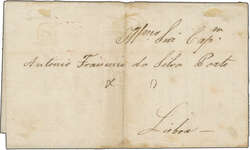 Illmo Snr Capm
Antonio Francisco da Silva Porto
Lisboa